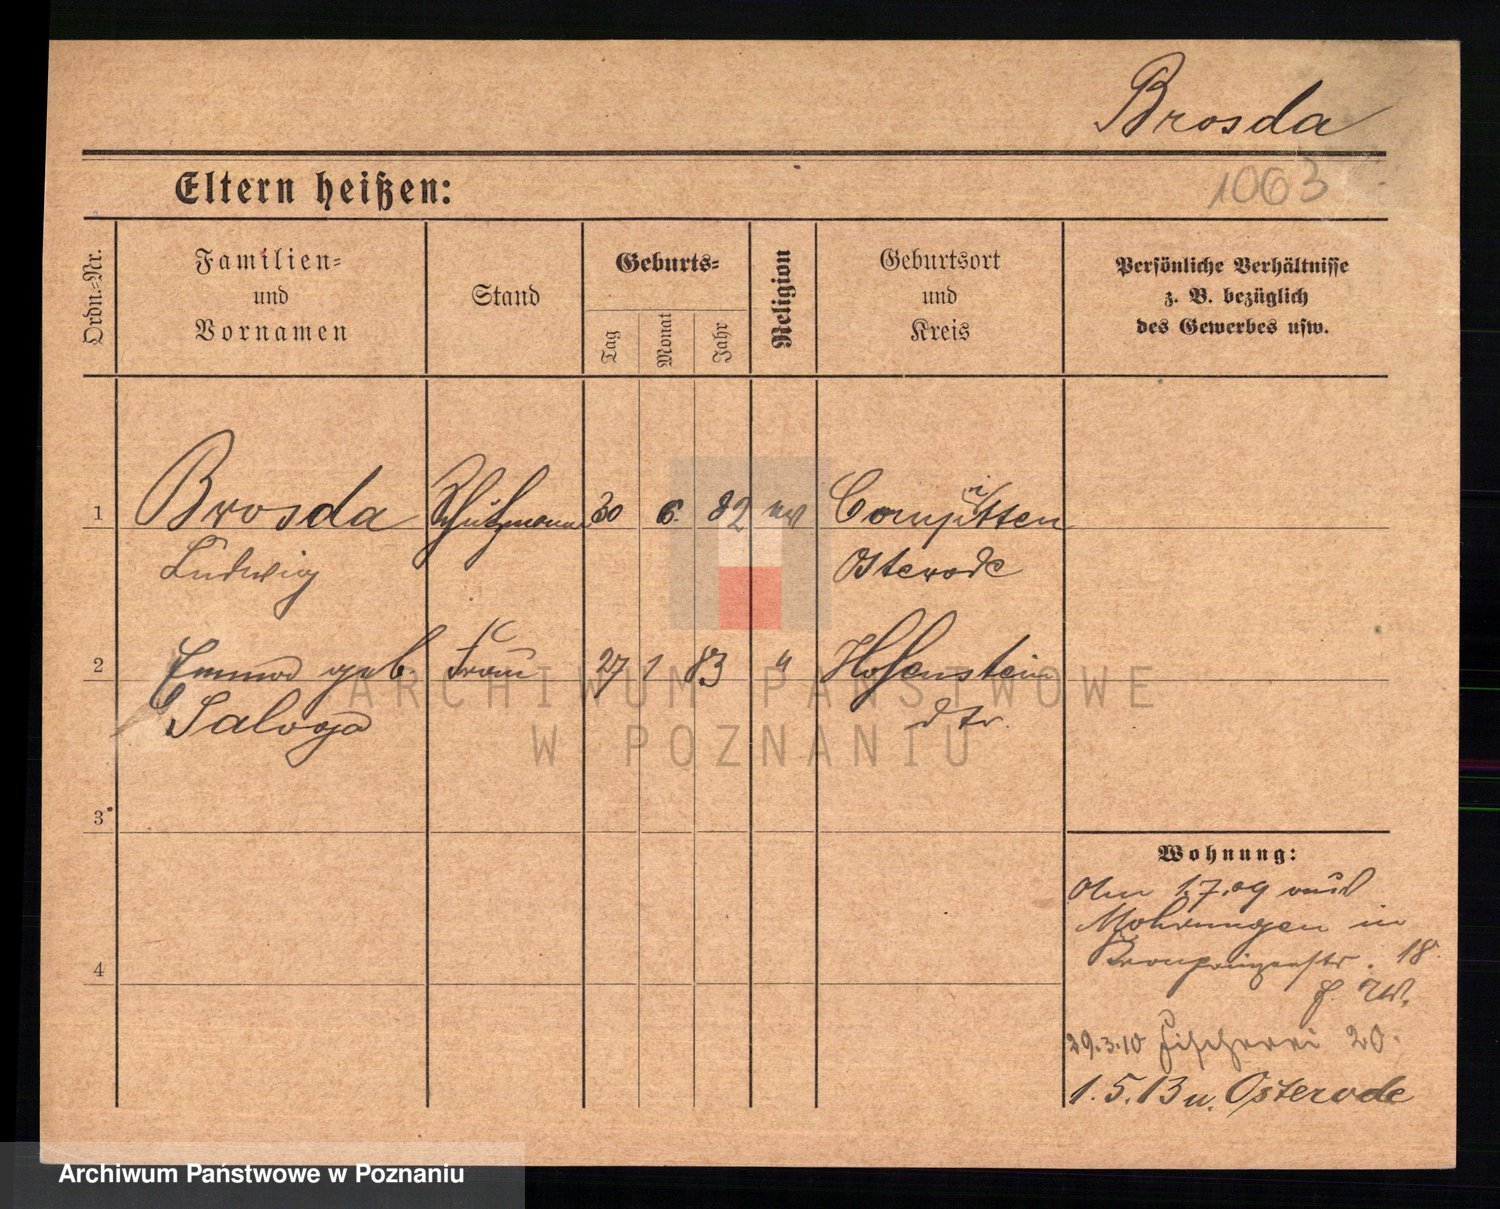 Brosda
1063
Eltern heißen:
Ordn.-Nr.
Familien-
und
Vornamen
Stand
Geburts-
Tag
Monat
Jahr
Religion
Geburtsort
und
Kreis
Persönliche Verhältnisse
z. B. bezüglich
des Gewerbes usw.
1 Brosda Schutzmann 30 6. 82 ev Compitten
Ludwig Osterode
2 Emma geb. Frau 27 1 83 " Hohenstein
Saloga dto.
3
4
Wohnung:
1.7.09
Mohrungen in
Kronprinzenstr. 18
29.3.10 Fischerei 20.
1.5.13 n. Osterode
ARCHIWUM PAŃSTWOWE
W POZNANIU
Archiwum Państwowe w Poznaniu